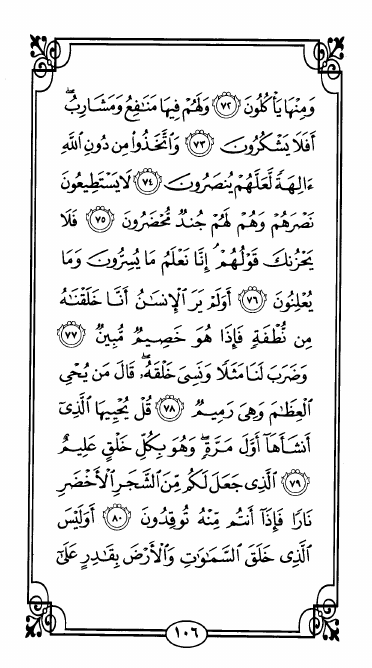 وَمِنْهَا يَأْكُلُونَ ٧٢ وَلَهُمْ فِيهَا مَنَٰفِعُ وَمَشَارِبُ ۖ
أَفَلَا يَشْكُرُونَ ٧٣ وَٱتَّخَذُوا۟ مِن دُونِ ٱللَّهِ
ءَالِهَةً لَّعَلَّهُمْ يُنصَرُونَ ٧٤ لَا يَسْتَطِيعُونَ
نَصْرَهُمْ وَهُمْ لَهُمْ جُندٌ مُّحْضَرُونَ ٧٥ فَلَا
يَحْزُنكَ قَوْلُهُمْ ۘ إِنَّا نَعْلَمُ مَا يُسِرُّونَ وَمَا
يُعْلِنُونَ ٧٦ أَوَلَمْ يَرَ ٱلْإِنسَٰنُ أَنَّا خَلَقْنَٰهُ
مِن نُّطْفَةٍ فَإِذَا هُوَ خَصِيمٌ مُّبِينٌ ٧٧
وَضَرَبَ لَنَا مَثَلًا وَنَسِىَ خَلْقَهُۥ ۖ قَالَ مَن يُحْىِ
ٱلْعِظَٰمَ وَهِىَ رَمِيمٌ ٧٨ قُلْ يُحْيِيهَا ٱلَّذِىٓ
أَنشَأَهَآ أَوَّلَ مَرَّةٍ ۖ وَهُوَ بِكُلِّ خَلْقٍ عَلِيمٌ
٧٩ ٱلَّذِى جَعَلَ لَكُم مِّنَ ٱلشَّجَرِ ٱلْأَخْضَرِ
نَارًا فَإِذَآ أَنتُم مِّنْهُ تُوقِدُونَ ٨٠ أَوَلَيْسَ
ٱلَّذِى خَلَقَ ٱلسَّمَٰوَٰتِ وَٱلْأَرْضَ بِقَٰدِرٍ عَلَىٰٓ
١٠٦